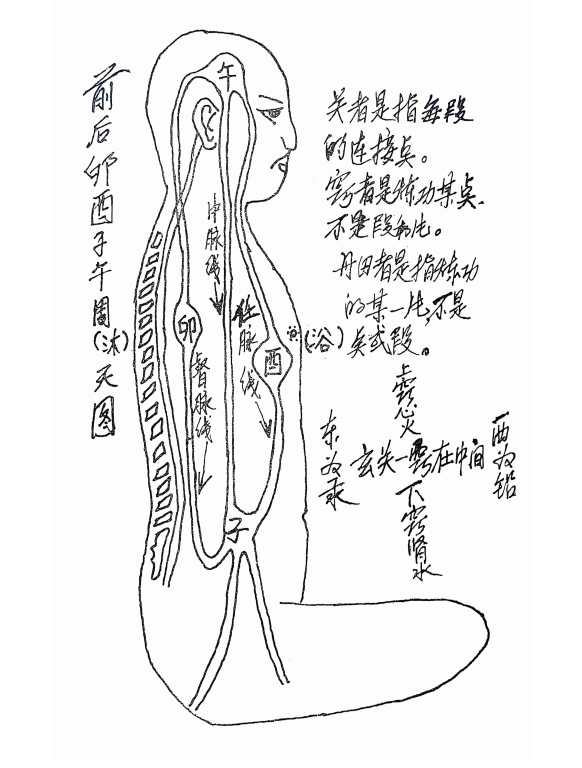 前后卯酉子午周天图
(沐)
午
中脉线
卯
督脉线
任脉线
酉
(浴)
子
关者是指每段
的连接点。
窍者是炼功某点、
不是段和片。
丹田者是指炼功
的某一片,不是
关或段。
上窍心火
玄关一窍在中间
下窍肾水
东为汞
西为铅